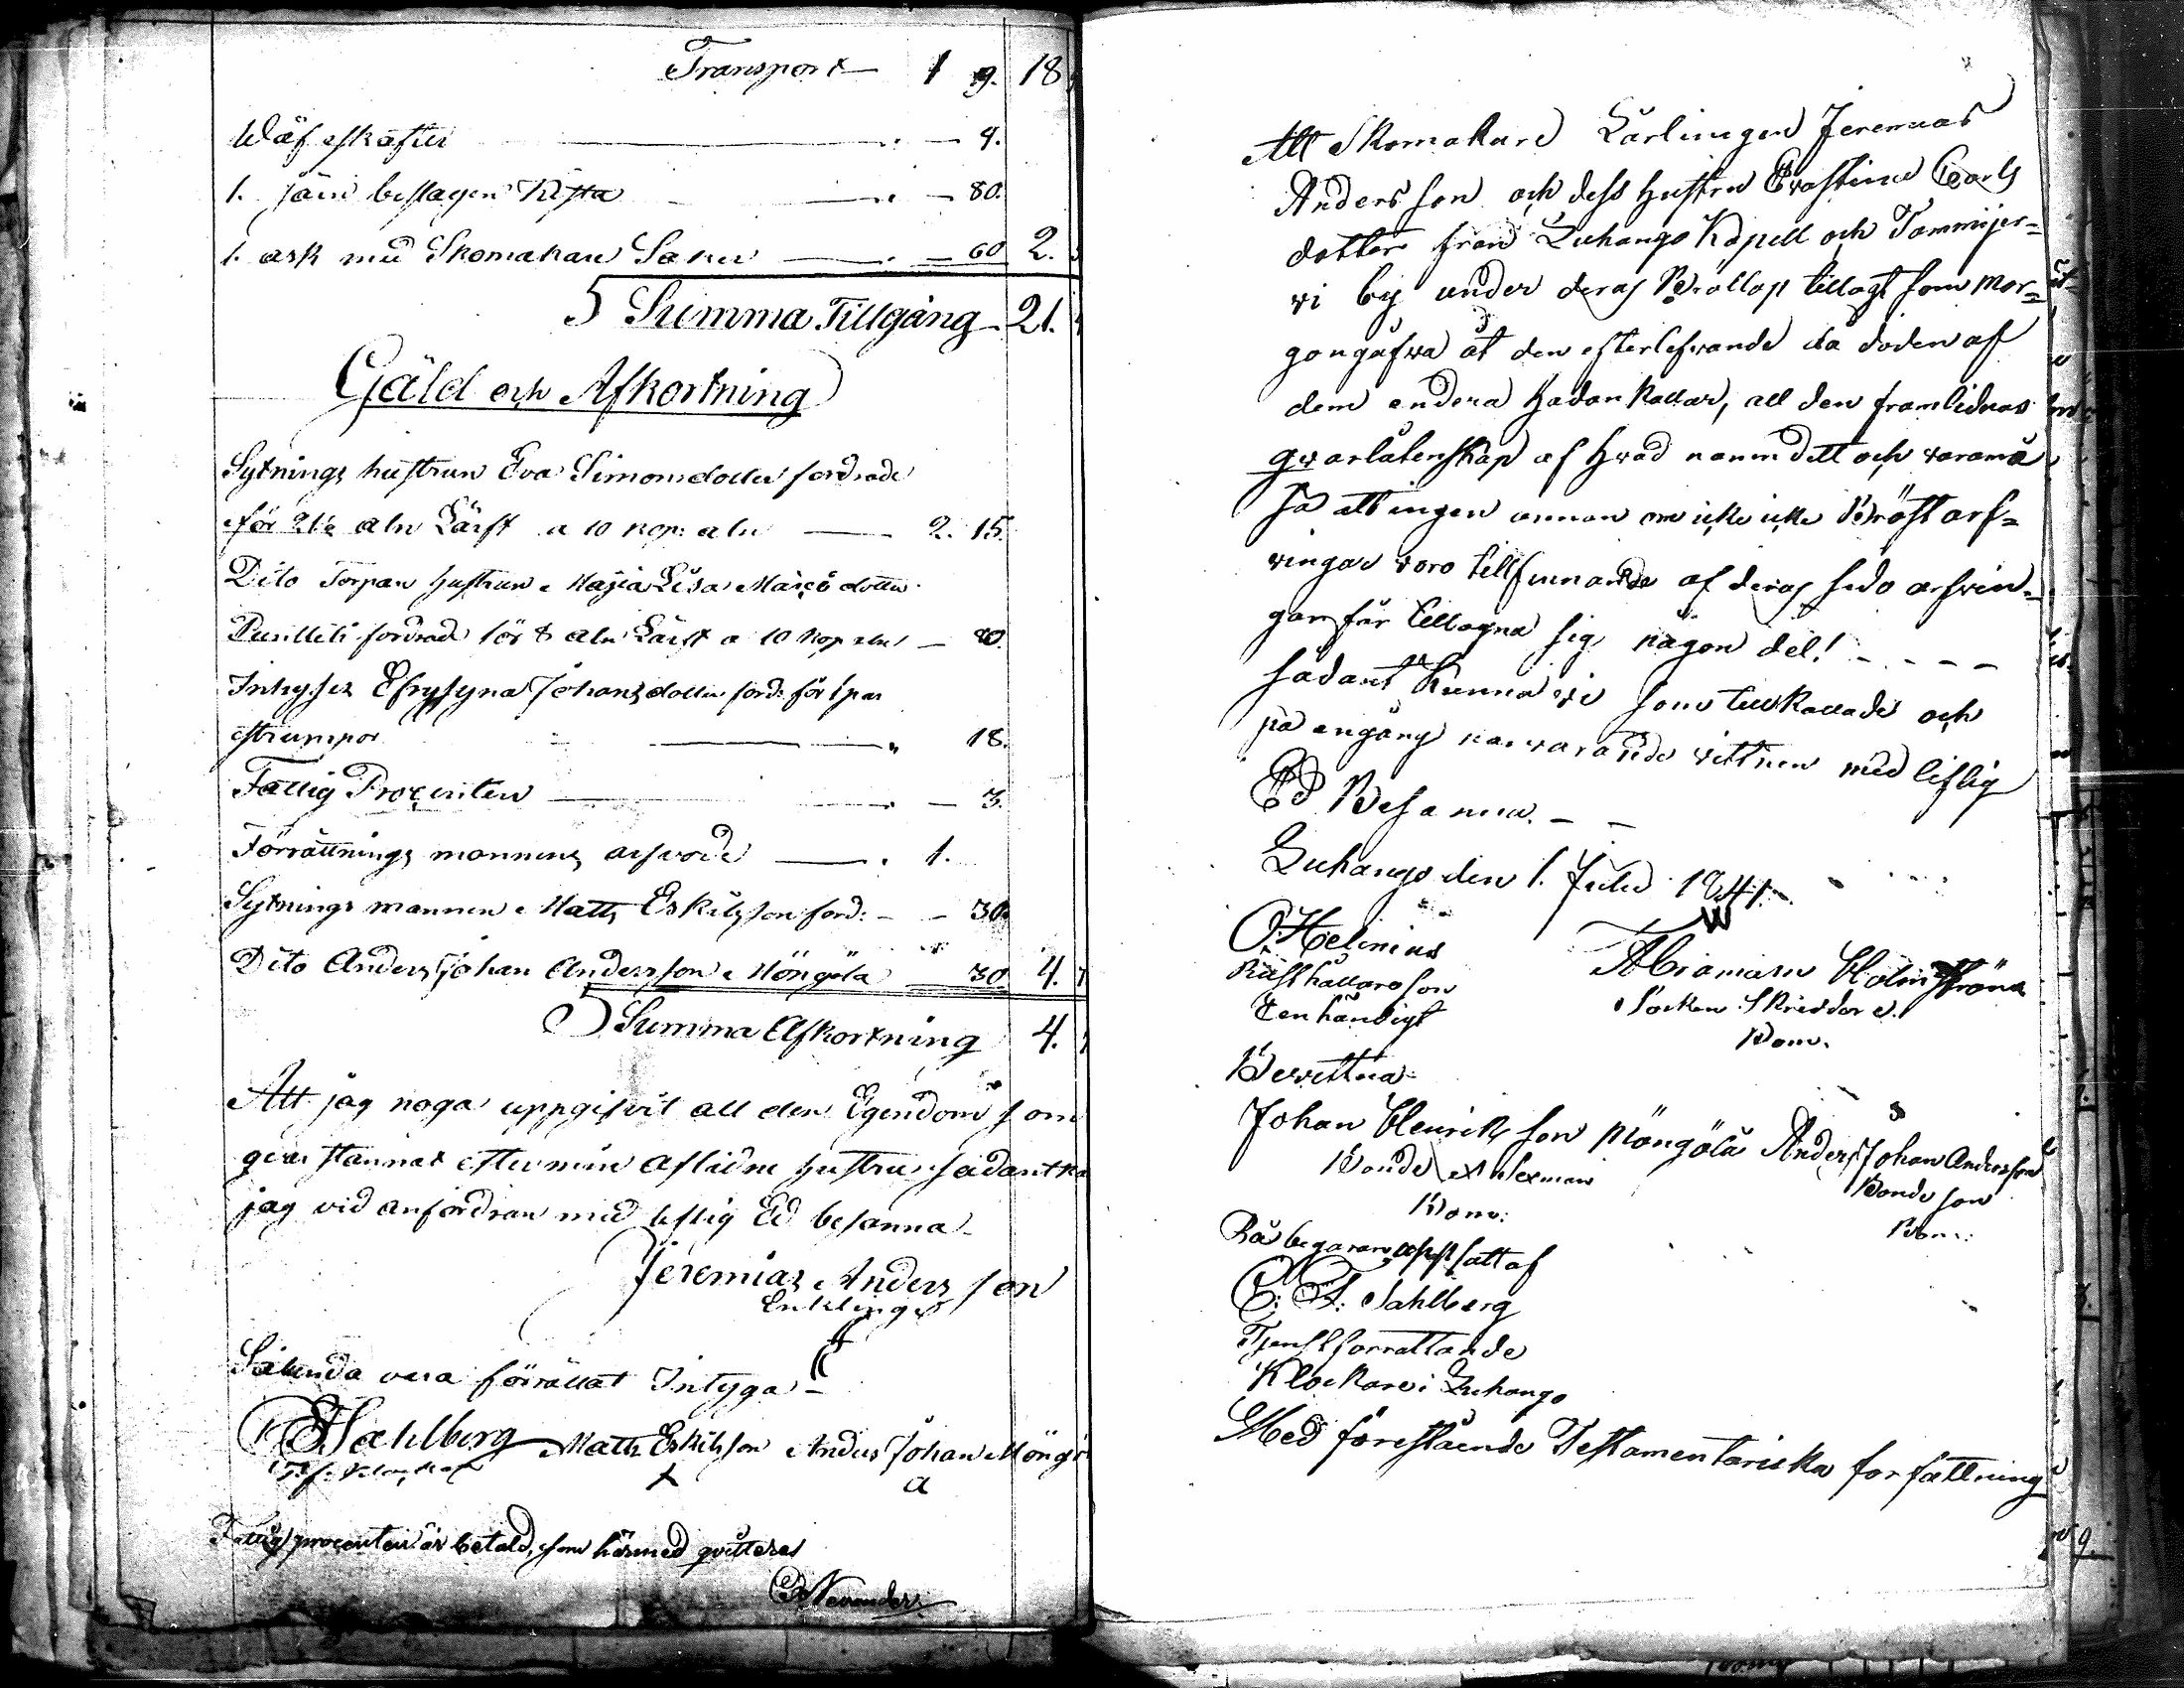 Transport 1 9. 18
Wäf skäfter 4.
1. järn beslagen Kista 80.
1. ask med Skomakare Saker 60 2.
Summa Tillgång 21.
Gäld och Afkortning
Sytnings hustrun Eva Simonsdotter fordrade
för 21½ aln Lärft a 10 kop: aln 2. 15.
Dito Torpare hustrun Maja Lisa Matsdotter
fordrade för 8 aln Lärft a 10 kop aln 80.
Inhyses Efrosyna Johansdotter ford: för 1 par
strumpor 18.
Fattig Procenten 3.
Förrättnings mannens arfvode 1.
Sytnings mannen Matts Eskilsson ford: 30.
Dito Anders Johan Andersson Möngölä 30 4.
Summa Afkortning 4.
Att jag noga uppgifvit all den Egendom som
qvar stannat efter min aflidne hustru sådant ka
jag vid anfordran med liflig Ed besanna
Jeremias Anders son
Enklinge
Sålunda vara förrättat Intyga
Sahlberg Matts Eskilsson Anders Johan Möngö
Fattig procenten är betald, som härmed qvitteras
Att Skomakare Lärlingen Jeremias
Anders son och dess hustru Christina Carls
dotter från Luhango Kapell och Tammijer=
vi by under deras Bröllop tillagt som mor=
gongåfwa åt den efterlefwande då döden af
dem endera hädan kallar, all den framlidnas
qwarlåtenskap af hwad namn dett och vara må
så att ingen annan om icke icke Bröst arf=
wingar woro tillfinnande af deras sido arfwin=
gar får tillägna sig någon del!
sådant kunna vi som tillkallade och
på engång närvarande vittnen med liflig
Ed Besanna.
Luhango den 1. Julii 1841.
Helenius
Rusthållare son
Egenhändigt
Abraham Holmström
Socken Skräddare.
Bom.
Bevittna:
Johan Henriks son Möngölä Anders Johan Andersson
Bonde ex Sexman Bonde son
Bom: Bom:
På begäran uppsatt af
C: F: Sahlberg
Tjenstförrättande
Klockare i Luhango
Med förestående Testamentariska författning